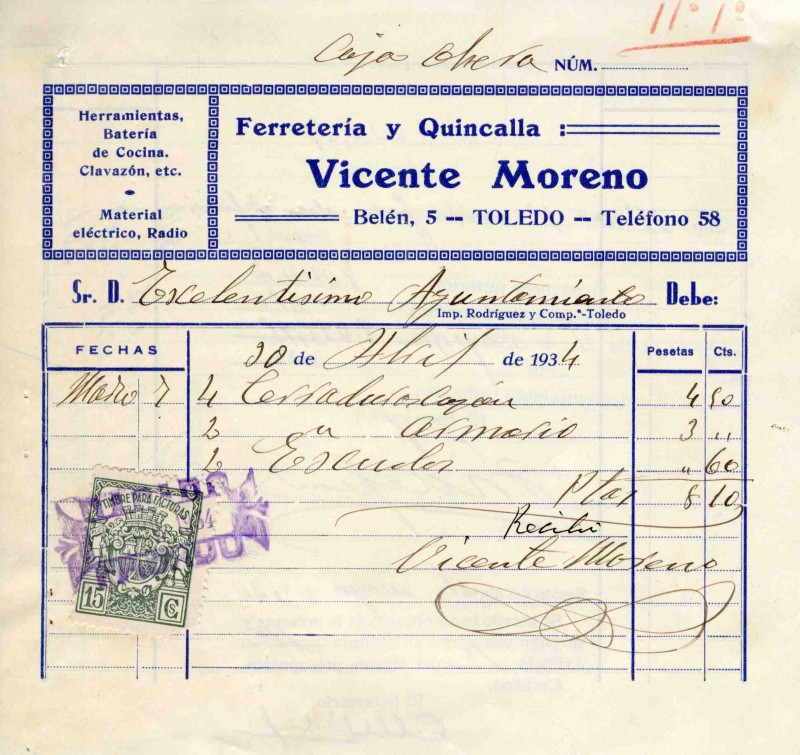 11º 1º
NÚM.
Herramientas,
Batería
de Cocina.
Clavazón, etc.
Material
eléctrico, Radio
Ferretería y Quincalla :
Vicente Moreno
Belén, 5 -- TOLEDO -- Teléfono 58
Sr. D. Excelentisimo Ayuntamiento Debe:
Imp. Rodríguez y Comp.ª-Toledo
FECHAS 30 de Abril de 1934 Pesetas Cts.
Marzo 7 4 Cerraduras cajón 4 50
2 " armario 3 "
2 Escudos " 60
Ptas 8 10
Recibí
Vicente Moreno
TIMBRE PARA FACTURAS
15 CS